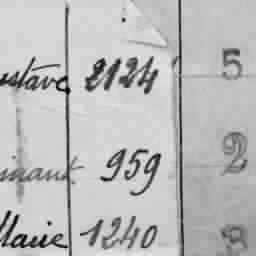 ustave 2124 5
inant 959 2
Marie 1240